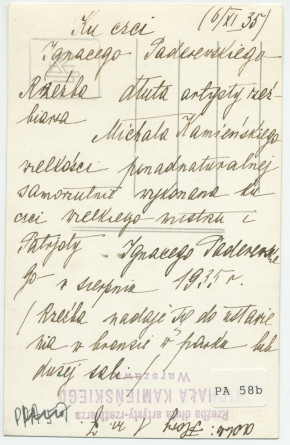 (6/XI 35)
Ku czci
Ignacego Paderewskiego
Rzeźba dłuta artysty rzeź-
biarza
Michała Kamieńskiego
wielkości ponadnaturalnej
samorzutnie wykonana ku
czci wielkiego mistrza i
Patryoty Ignacego Paderewskie
go w sierpniu 1935 r.
/ Rzeźba nadaje się do ustawie
nia w bronzie w parku lub
dużej sali /
Rzeźba dłuta artysty-rzeźbiarza
MICHAŁA KAMIEŃSKIEGO
Warszawa
PA 58b